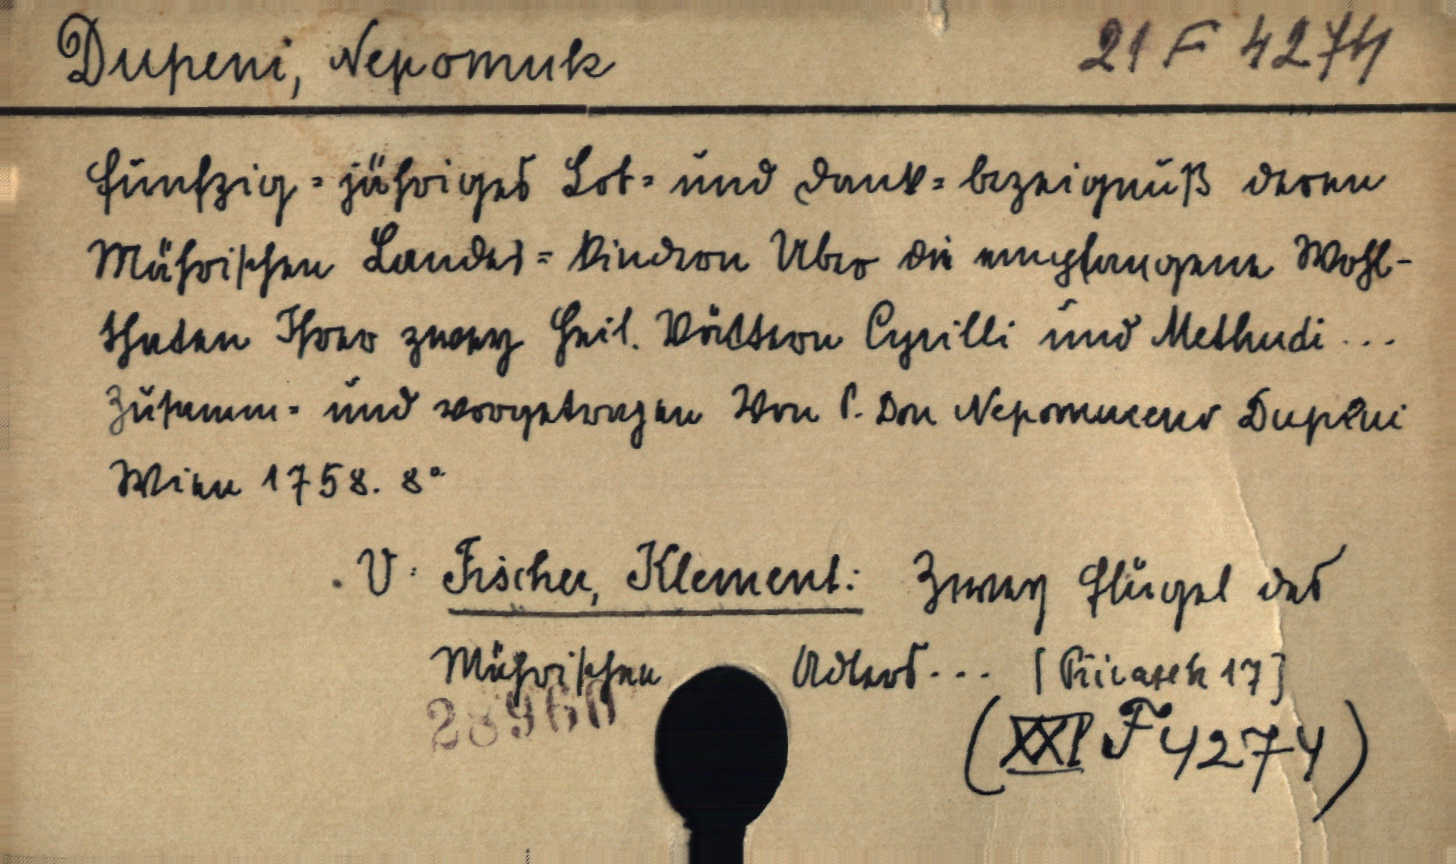 Dupeni, Nepomuk 21 F 4274
fünfzig-jähriges Lob- und dank-bezeignuß deren
Mährischen Landes-kindern Uber die empfangene Wohl-
thaten Ihrer zwey Heil. Vättern Cyrilli und Methudi...
Zusamm- und vorgetragen Von P. Don Nepomuceno Dupeni
Wien 1758. 8°
V: Fischer, Klement: Zwey flügel des
Mährischen Adlers... [Přívazek 17]
28960
(XXI F 4274)